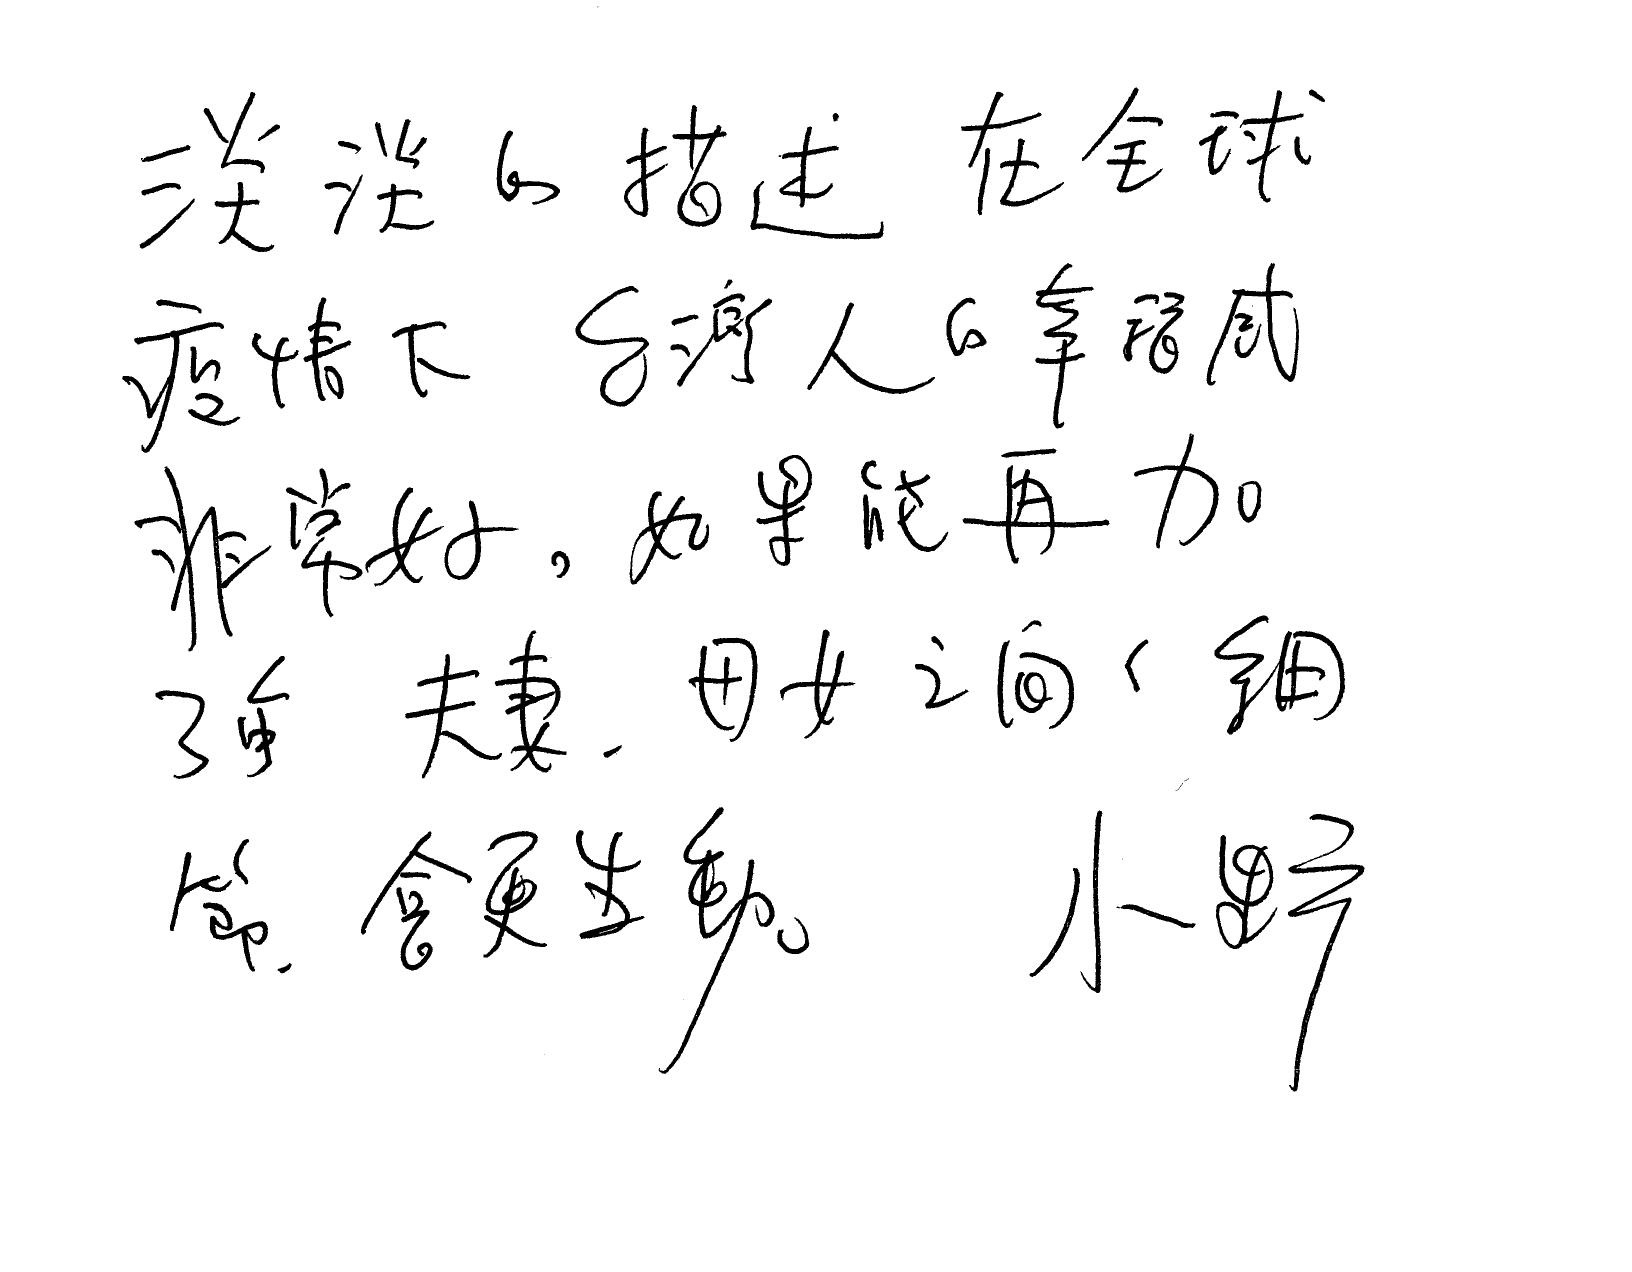 淡淡的描述 在全球
疫情下 台灣人的幸福感
非常好，如果能再加
強 夫妻、母女之間的細
節、會更生動。 小野